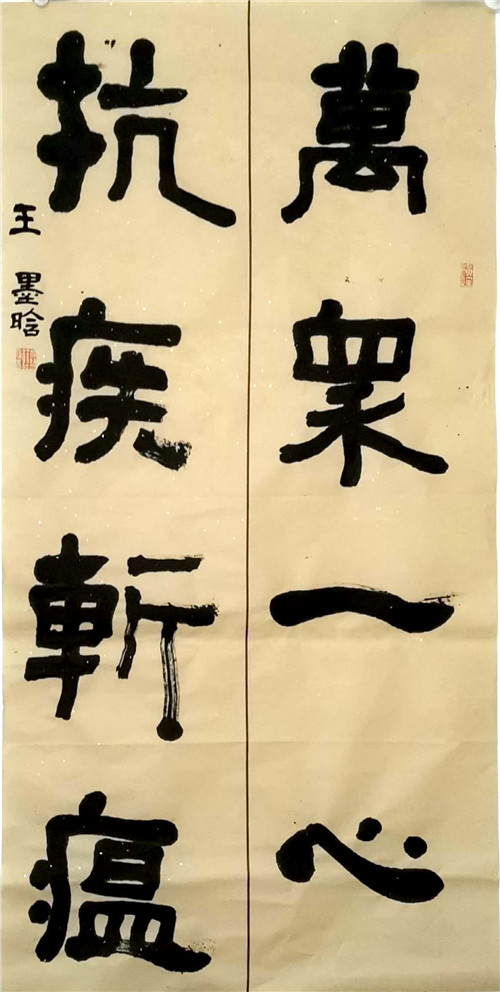 萬眾一心
抗疾斬瘟
王墨晗